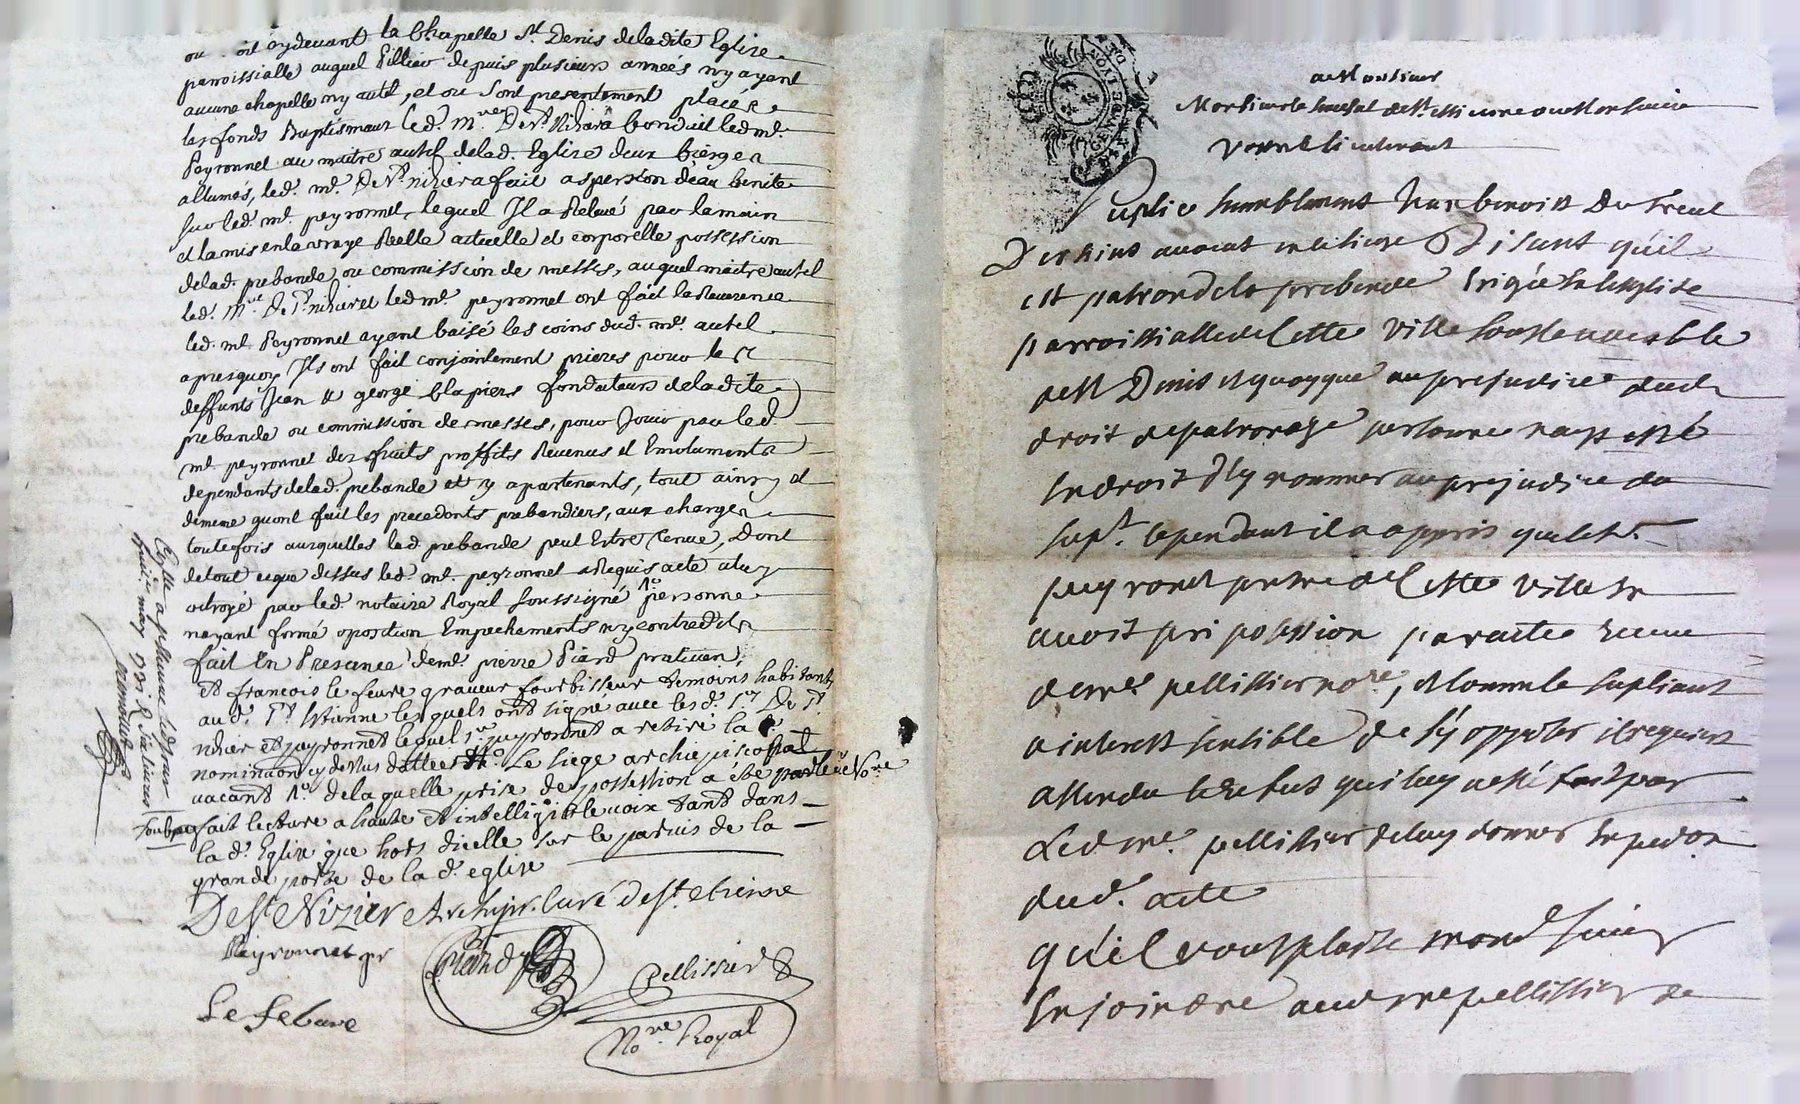 ou .. oit cydevant la Chapelle St. Denis deladite Eglise
parroissialle auquel Pillier depuis plusieurs années ny ayant
aucune chapelle ny autel, et ou sont presentement placés
les fonds Baptismaux led. mre De St Nizier a conduit led mr.
Peyronnet au maitre autel delad. Eglise deux cierges
allumés, led. mr. De St. nizier a fait aspersion deau benite
sur led. mr. peyronnet, lequel Il a Relevé par la main
et la mis en la vraye Reelle actuelle et corporelle possession
delad. prebande ou commission de messes, auquel maitre autel
led. Mre De St. nizier et led mr. peyronnet ont fait la Reverence
led. mr. Peyronnet ayant baisé les coins dud. mr. autel
apresquoy Ils ont fait conjointement prieres pour les
deffunts Jean & george Clapiers fondateurs deladite
prebande ou commission de messes, pour Jouir par led.
mr. peyronnet des fruits proffits Revenus et Emoluments
dependants delad. prebande et y apartenants, tout ainsy et
dememe quont fait les precedents prebandiers, aux charges
toutefois auxquelles lad. prebande peut Estre tenue, Dont
detout ceque dessus led. mr. peyronnet a Requis acte a luy
octroyé par led. notaire Royal soussigné personne
nayant formé oposition Empechements ny contredits
fait En Presence de mr. pierre Piard praticien,
et francois le feure graveur fourbisseur temoins habitants
aud. St Etienne lesquels ont signé avec les d. srs De St
nizier et peyronnet lequel sr peyronnet a retiré la
nomination cy dessus dattée Le siege archiepiscopal
vacant de laquelle prise de possession a été par led. Nore
fait lecture a haute et intelligible voix tant dans
la d. Eglise que hors dicelle sur le parvis de la
grande porte de la d. eglise
De St Nizier Archipr. Curé de St. etienne
Peyronnet pr
Piard
Pellissier
Le febure
Nore. Royal
a Monsieur
Monsieur le senechal de St. Etienne ou Monsieur
vostre lieutenant
Suplie humblement Jean benoist Du treul
avocat Disant quil
est patron de la prebende Erigée En leglise
parroissialle de Cette ville sous le vocable
de St Denis et quoyque au prejudice dud
droit de patronage personne naye esté
En droit d'y nommer au prejudice du
supt. Cependant il a appris que le sr.
peyronet prestre de Cette ville En
avoit pri possession par acte receu
de me. pellissier nore, et comme le supliant
a interest sensible de s'y opposer il requiert
attendu le refus qui luy a esté fait par
Led me. pellissier de luy donner Expedon
dud. acte
qu'il vous plaise mondt sieur
Enjoindre aud me pellissier de